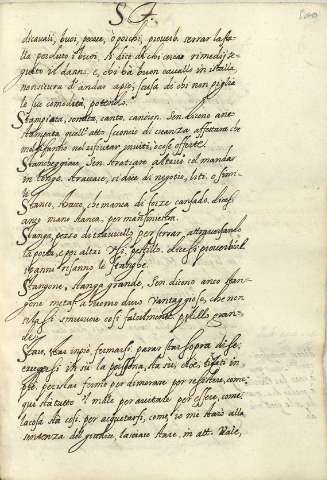 S T.
di cavalli, buoi, pecore, o porchi, proverb. serrar la stalla
lla perduto i buoi. si dice di chi cerca rimedij se-
guito il danno. e, chi hà buon cavallo in istalla
non si cura d'andar a piè, scusa di chi non piglia
le sue comodità, potendo.
Stampita, sonata, canto, canzon. Sen dicono anc
stampita quell' atto sconcio di creanza affettata che
nel rifiutar inviti, o cose offerte.
Stancheggiare, sen straticare altrui col mandar
in longo. straccare, si dice di negotio, liti, o simi-
Stanco, stracco, che manca di forze cansado. dicesi
anco mano stanca, per man sinestra.
Stanga, pezzo di travicello per serrar, attraversando
la porta, e per altri usi. pestillo. dicesi proverbial.
i panni rifanno le stanghe.
Stangone, stanga grande, sen dicono anco stan-
gone metaf. à huomo duro vantaggioso, che non
si lassi smuovere così facilmente. pestillo gran-
de.
Stare, star in piè, fermarsi, parar star sopra di se,
reggersi in sù la persona, sta sù, cioè, rizzati in
piè. poi star fermo per dimorare per resistere, come
quì stà tutto il male per aventale per essere, come,
la cosa stà così. per acquetarsi, come, io me starò alla
sentenza del giudice, lasciare stare, in att. vale,